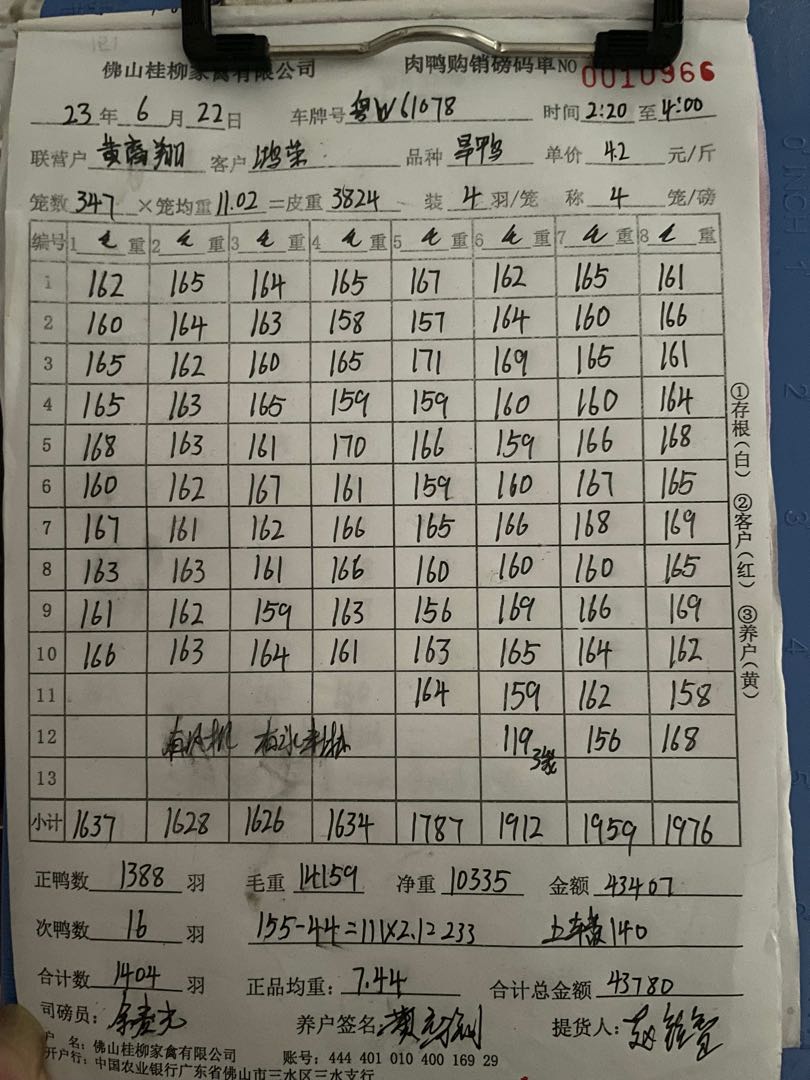 佛山桂柳家禽有限公司 肉鸭购销磅码单 NO 0010966
23年 6月 22日 车牌号 粤W61078 时间 2:20 至 4:00
联营户 客户 鸿荣 品种 旱鸭 单价 4.2 元/斤
笼数 347 ×笼均重 11.02 =皮重 3824 装 4 羽/笼 称 4 笼/磅
编号 1 毛 重 2 毛 重 3 毛 重 4 毛 重 5 毛 重 6 毛 重 7 毛 重 8 毛 重
1 162 165 164 165 167 162 165 161
2 160 164 163 158 157 164 160 166
3 165 162 160 165 171 169 165 161
4 165 163 165 159 159 160 160 164
5 168 163 161 170 166 159 166 168
6 160 162 167 161 159 160 167 165
7 167 161 162 166 165 166 168 169
8 163 163 161 166 160 160 160 165
9 161 162 159 163 156 169 166 169
10 166 163 164 161 163 165 164 162
11 164 159 162 158
12 119 156 168
13
小计 1637 1628 1626 1634 1787 1912 1959 1976
①存根(白) ②客户(红) ③养户(黄)
正鸭数 1388 羽 毛重 14159 净重 10335 金额 43407
次鸭数 16 羽 155-44=111×2.1=233 上车费140
合计数 1404 羽 正品均重: 7.44 合计总金额 43780
司磅员: 养户签名: 提货人:
户 名: 佛山桂柳家禽有限公司 账号: 444 401 010 400 169 29
开户行: 中国农业银行广东省佛山市三水区三水支行